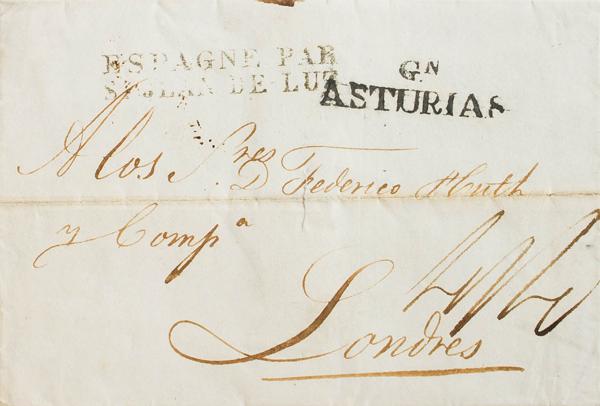 ESPAGNE PAR
St JEAN DE LUZ
GN
ASTURIAS
A los Sres Dn Federico Huth
y Compa
Londres